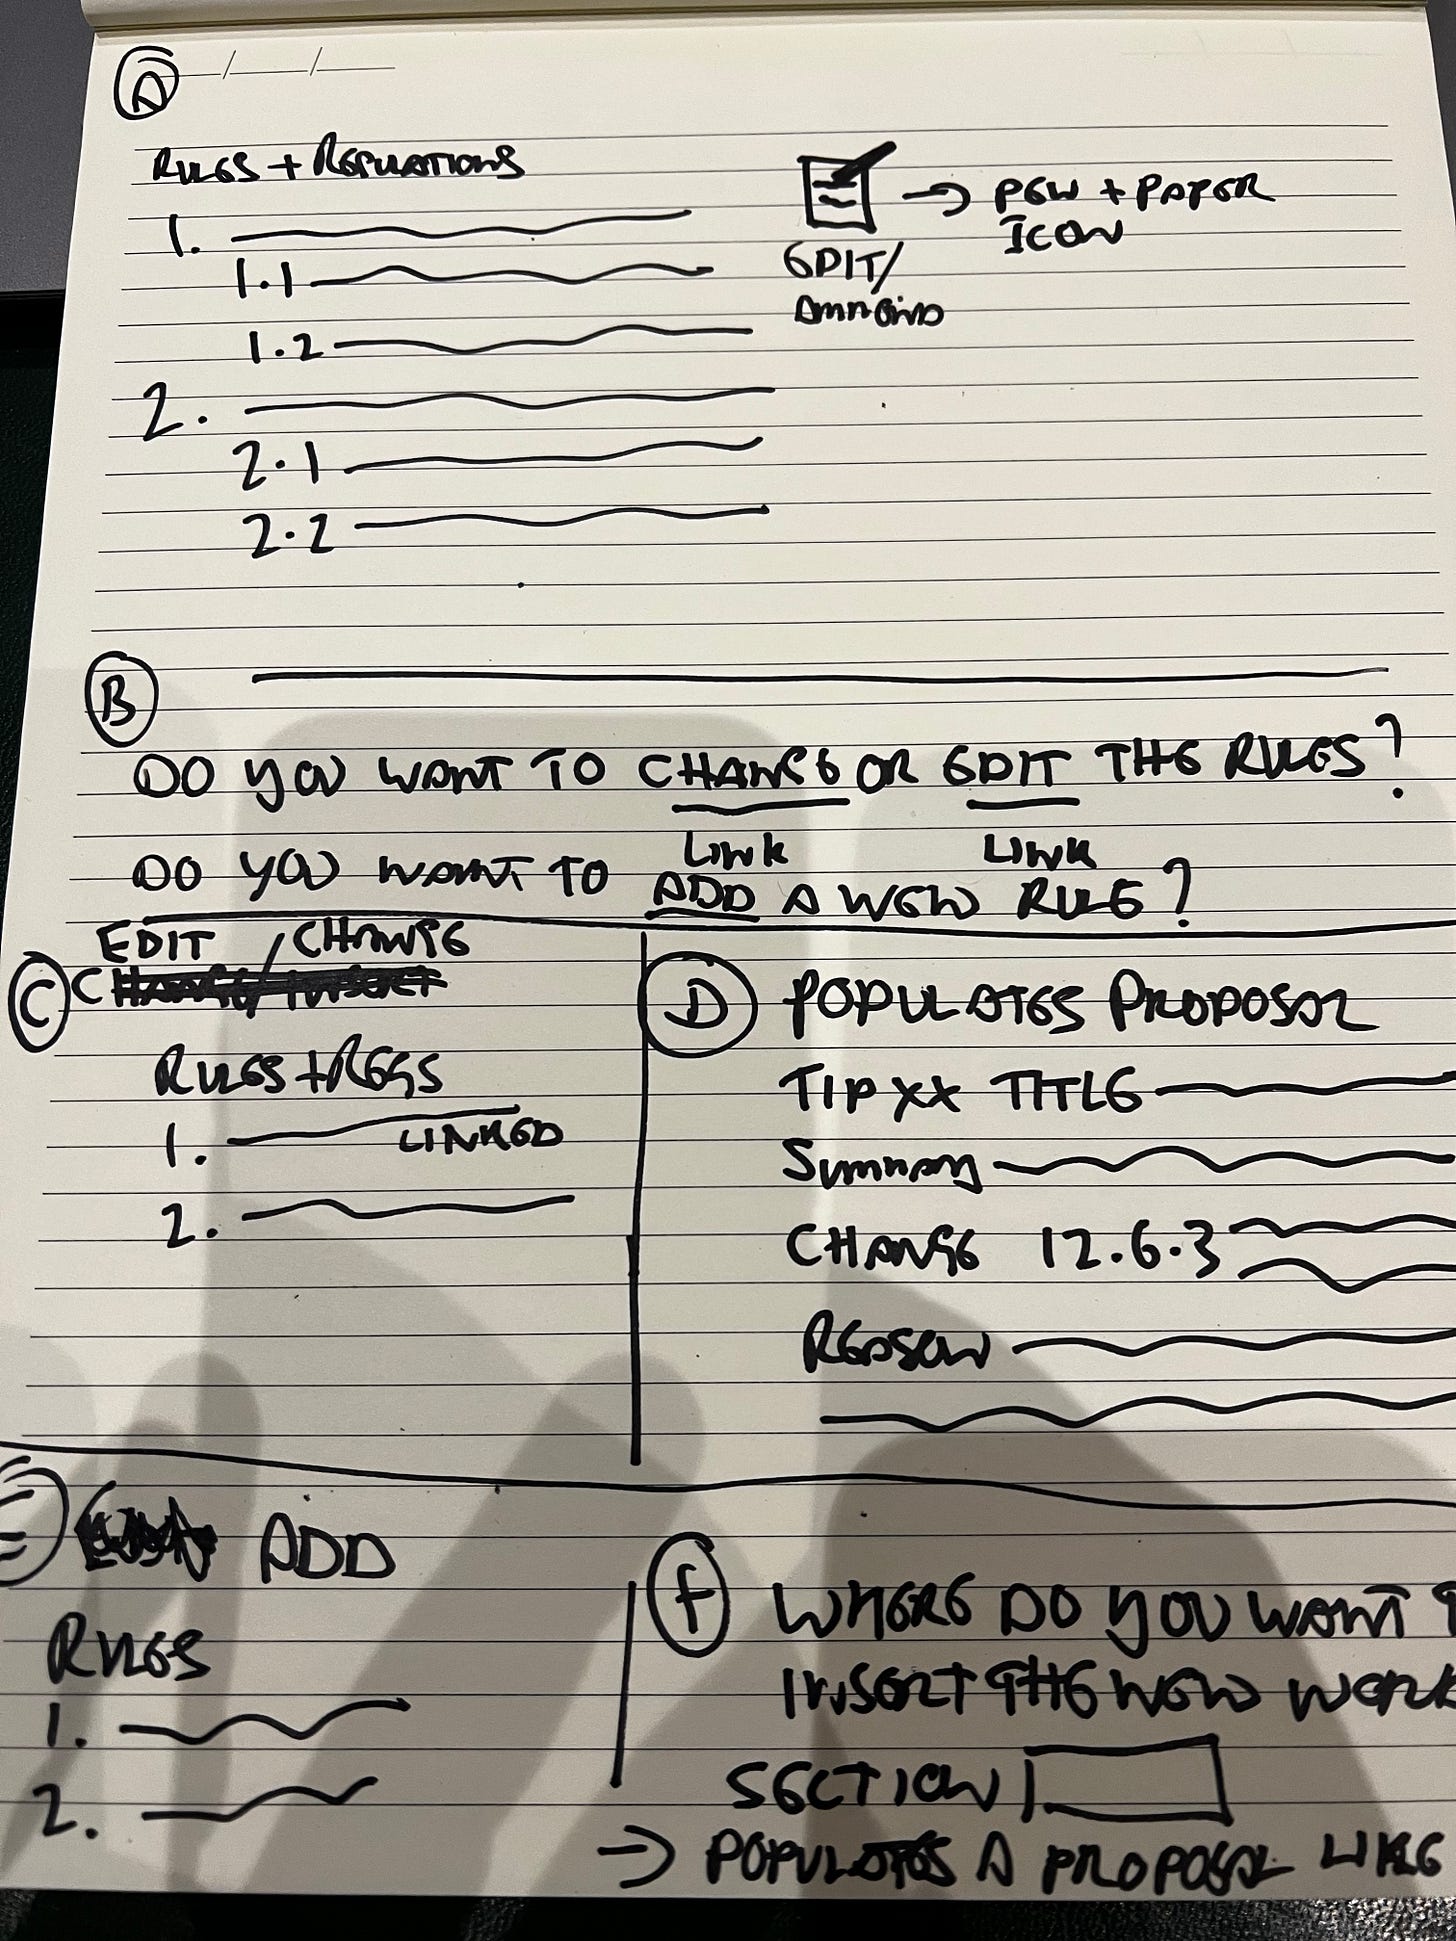 A
RULES + REGULATIONS
1.
1.1
1.2
2.
2.1
2.2
EDIT/
AMMEND
→ PEN + PAPER
ICON
B
DO YOU WANT TO CHANGE OR EDIT THE RULES?
LINK LINK
DO YOU WANT TO ADD A NEW RULE?
C
EDIT / CHANGE
RULES + REGS
1. LINKED
2.
D POPULATES PROPOSAL
TIP XX TITLE
SUMMARY
CHANGE 12.6.3
REASON
E ADD
RULES
1.
2.
F WHERE DO YOU WANT
INSERT THE NEW
SECTION
→ POPULATES A PROPOSAL LIKE